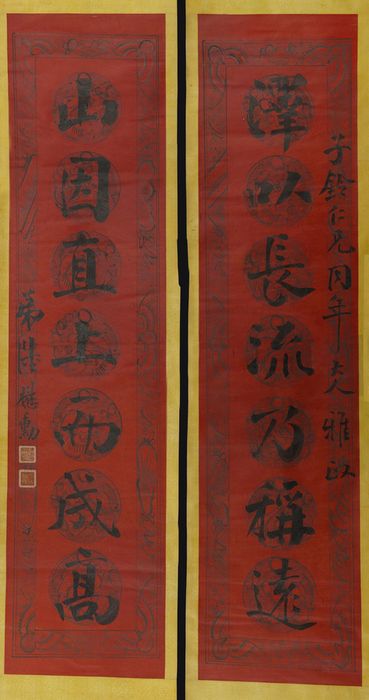 子鈴仁兄同年大人雅政
澤以長流乃稱遠
山因直上而成高
弟陸懋勳